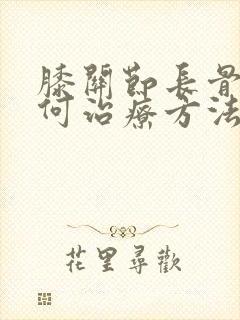 膝關節長骨
何治療方法
花里尋歡